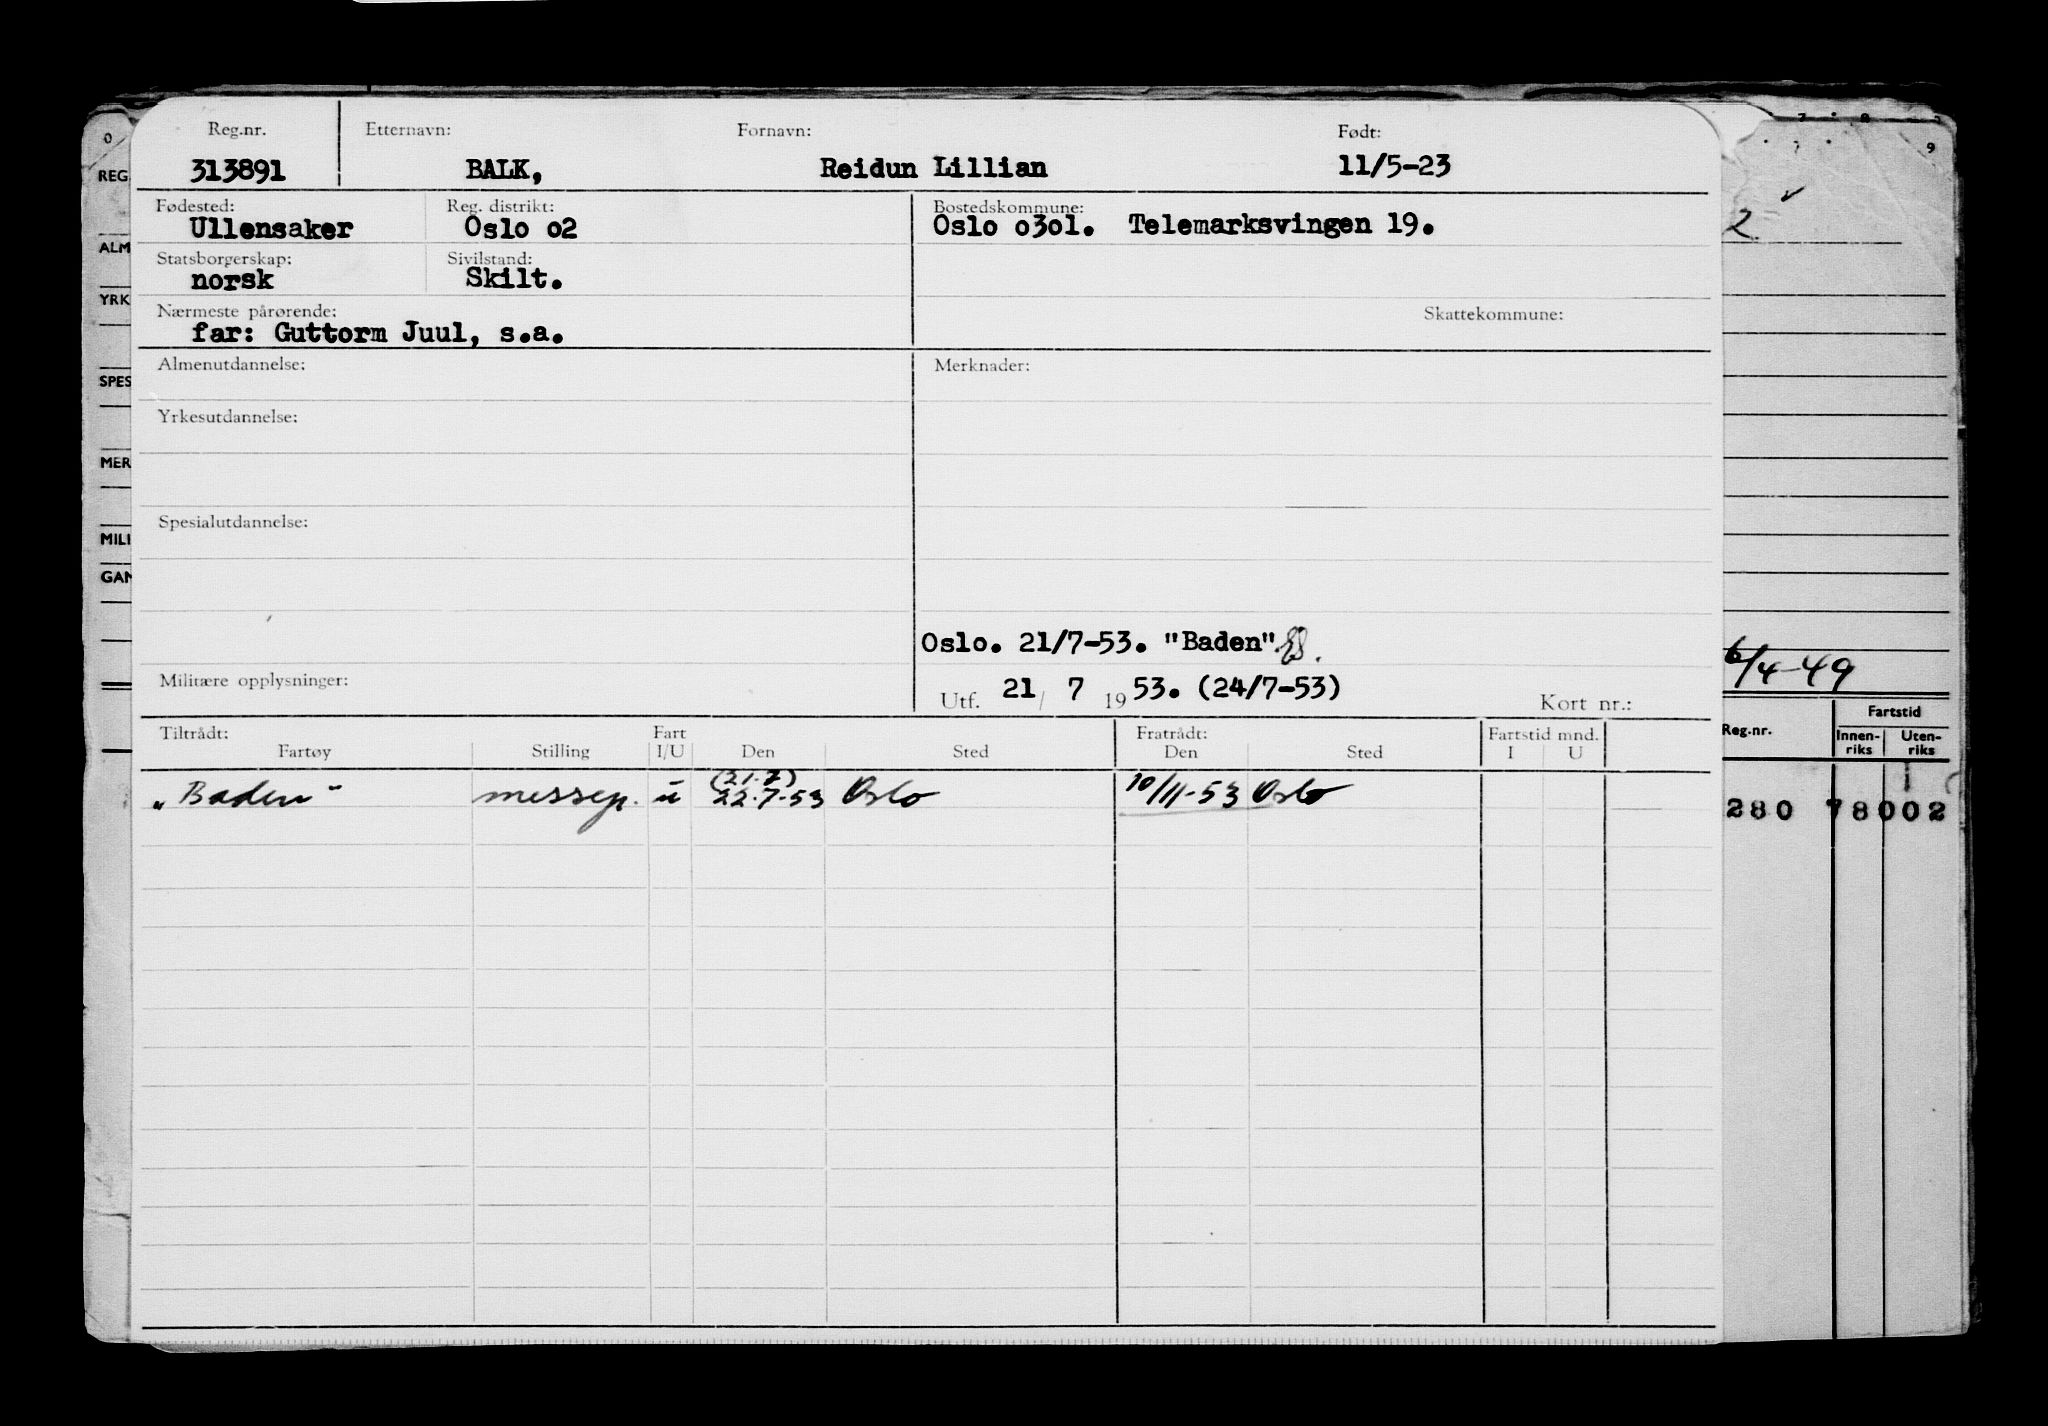 Reg.nr. Etternavn: Fornavn: Født:
313891 BALK, Reidun Lillian 11/5-23
Fødested: Reg. distrikt: Bostedskommune:
Ullensaker Oslo o2 Oslo o3ol. Telemarksvingen 19.
Statsborgerskap: Sivilstand:
norsk Skilt.
Nærmeste pårørende: Skattekommune:
far: Guttorm Juul, s.a.
Almenutdannelse: Merknader:
Yrkesutdannelse:
Spesialutdannelse:
Oslo. 21/7-53. "Baden"
Militære opplysninger:
Utf. 21/ 7 1953. (24/7-53) Kort nr.:
Tiltrådt: Fart Fratrådt: Fartstid mnd.
Fartøy Stilling I/U Den Sted Den Sted I U
(21.7)
"Baden" messep. u 22.7-53 Oslo 10/11-53 Oslo
0
REG.
ALM
YRK
SPES
MER
MILI
GAN
7 8
9
2
6/4-49
Reg.nr. Fartstid
Innen-riks Uten-riks
280 78002